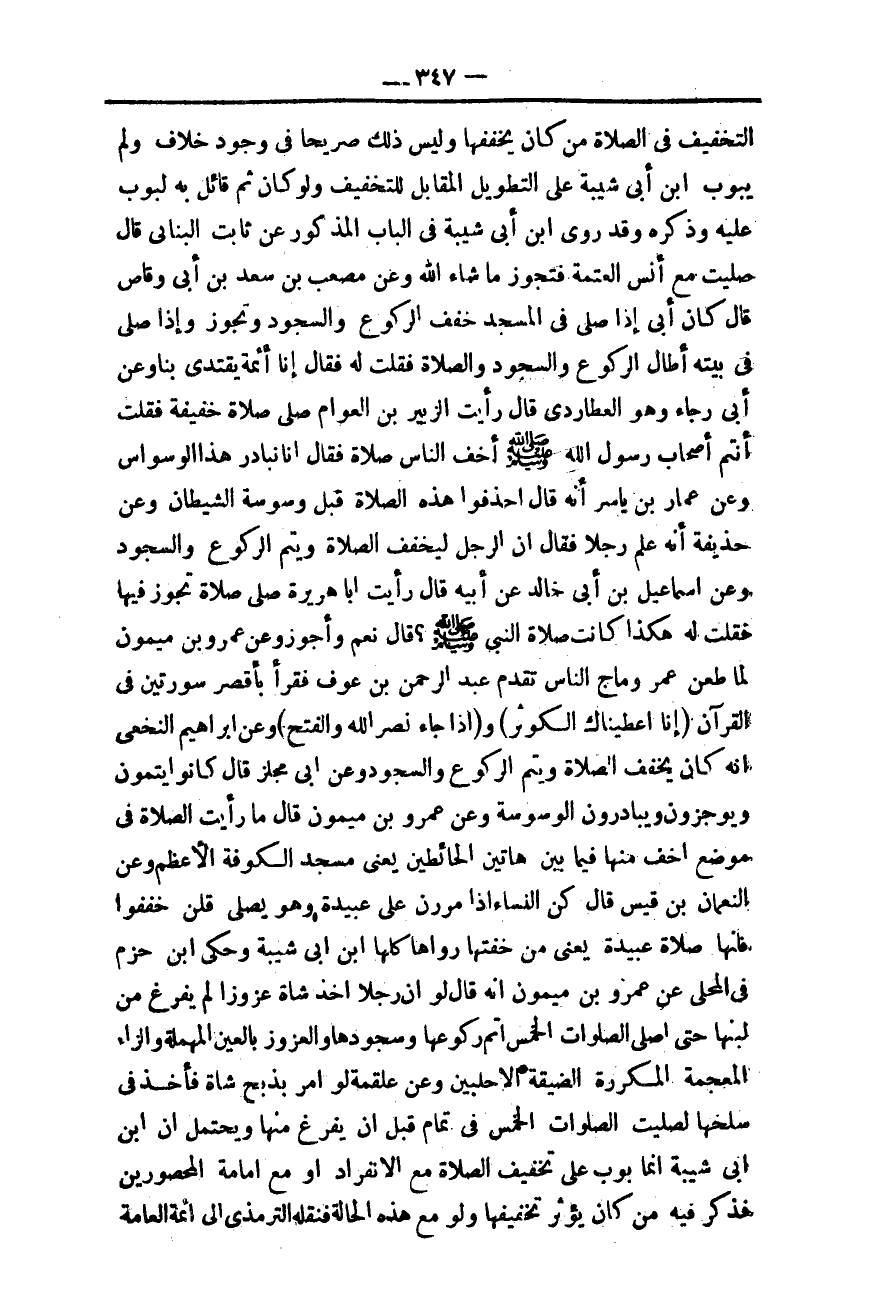 — ٣٤٧ —
التخفيف فى الصلاة من كان يخففها وليس ذلك صريحا فى وجود خلاف ولم
يبوب ابن أبى شيبة على التطويل المقابل للتخفيف ولو كان ثم قائل به لبوب
عليه وذكره وقد روى ابن أبى شيبة فى الباب المذكور عن ثابت البنانى قال
صليت مع أنس العتمة فتجوز ما شاء الله وعن مصعب بن سعد بن أبى وقاص
قال كان أبى إذا صلى فى المسجد خفف الركوع والسجود وتجوز وإذا صلى
فى بيته أطال الركوع والسجود والصلاة فقلت له فقال إنا أئمة يقتدى بنا وعن
أبى رجاء وهو العطاردى قال رأيت الزبير بن العوام صلى صلاة خفيفة فقلت
أنتم أصحاب رسول الله ﷺ أخف الناس صلاة فقال انا نبادر هذا الوسواس
وعن عمار بن ياسر أنه قال احذفوا هذه الصلاة قبل وسوسة الشيطان وعن
حذيفة أنه علم رجلا فقال ان الرجل ليخفف الصلاة ويتم الركوع والسجود
وعن اسماعيل بن أبى خالد عن أبيه قال رأيت ابا هريرة صلى صلاة تجوز فيها
فقلت له هكذا كانت صلاة النبي ﷺ ؟ قال نعم وأجوز وعن عمرو بن ميمون
لما طعن عمر وماج الناس تقدم عبد الرحمن بن عوف فقرأ بأقصر سورتين فى
القرآن (إنا اعطيناك الكوثر) و(اذا جاء نصر الله والفتح) وعن ابراهيم النخعى
انه كان يخفف الصلاة ويتم الركوع والسجود وعن ابى مجلز قال كانوا يتمون
ويوجزون ويبادرون الوسوسة وعن عمرو بن ميمون قال ما رأيت الصلاة فى
موضع اخف منها فيما بين هاتين الحائطين يعنى مسجد الكوفة الأعظم وعن
النعمان بن قيس قال كن النساء اذا مررن على عبيدة وهو يصلى قلن خففوا
فانها صلاة عبيدة يعنى من خفتها رواها كلها ابن ابى شيبة وحكى ابن حزم
فى المحلى عن عمرو بن ميمون انه قال لو ان رجلا اخذ شاة عزوزا لم يفرغ من
لبنها حتى اصلى الصلوات الخمس اتم ركوعها وسجودها والعزوز بالعين المهملة والزاء
المعجمة المكررة الضيقة الاحلبين وعن علقمة لو امر بذبح شاة فأخذ فى
سلخها لصليت الصلوات الخمس فى تمام قبل ان يفرغ منها ويحتمل ان ابن
ابى شيبة انما بوب على تخفيف الصلاة مع الانفراد او مع امامة المحصورين
فذكر فيه من كان يؤثر تخفيفها ولو مع هذه الحالة فنقله الترمذى الى ائمة العامة